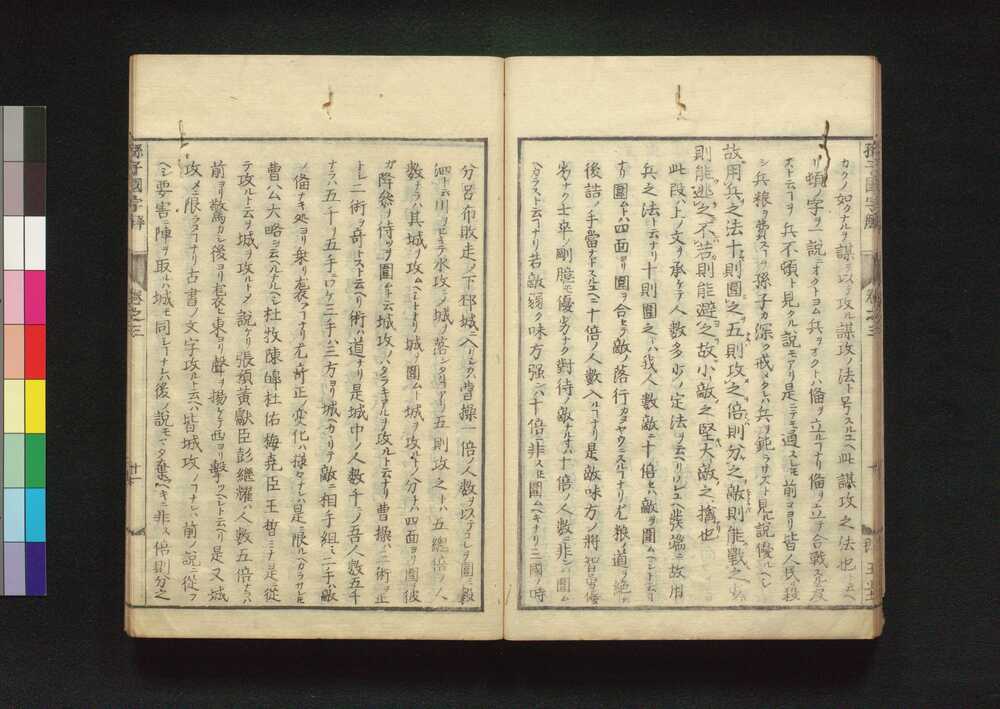 カクノ如クナルヲ謀ヲ以テ攻ル謀攻ノ法ト号スルユヘ此謀攻之法也ト云ヘ
リ頓ノ字ヲ一説ニオクトヨム兵ヲオクトハ備ヲ立ルコナリ備ヲ立テ合戦スルニ及
ストニ云コヲ兵不頓ト見タル説モアリ是ニテモ通スレモ前ヨリ皆人民ヲ殺
シ兵粮ヲ費スコヲ孫子カ深ク戒メタレハ兵ヲ鈍ラサスト見ル説優ルヘシ
故用兵之法十則圍之五則攻之倍則分之敵則能戰之少
則能逃之不若則能避之故小敵之堅大敵之擒也
此段ハ上ノ文ヲ承ケテ人数多少ノ定法ヲ云ヘリ故用
兵之法ト云ナリ十則圍之トハ我人数敵ニ十倍セハ敵ヲ圍ムヘシト云
ナリ圍ムトハ四面ヨリ圍ヲ合セ敵ノ落行カタヤウニスルコナリ尤粮道ヲ絶
後詰ノ手當ナトスルユヘ十倍ノ人数入ルコナリ是敵味方ノ將智勇優
劣ナク士卒ノ剛臆モ優劣ナク對待ノ敵ナルハ十倍ノ人数ニ非レハ圍ム
ヘカラスト云コナリ若敵弱ク味方強ハ十倍ニ非スモ圍ムヘキナリ三國ノ時
分呂布敗走メ下邳城ニ入リシカ曹操一倍ノ人数ヲ以テコレヲ圍ミ
泗ト云川ヲセキテ水攻メ城ヲ落シタリ五則攻之トハ五總倍ノ人
数ナラハ其城ヲ攻ムヘシトナリ城ヲ圍ムト城ヲ攻ルトノ分ハ四面ヨリ圍テ彼
カ降參ヲ待ツヲ圍ムト云城攻ノハタラキアルヲ攻ルト云ナリ曹操ハ三術ヲ正
トレ二術ヲ奇トスト云ヘリ術ハ道ナリ是城中ノ人数千ニメ吾人数五千
ナラハ五千ヲ五手ニワケ三手ハ三方ヨリ城ヘカヽリテ敵ニ相手組ミ二手ハ敵
ノ備ナキ処ヨリ乗リ裏フコナリ尤奇正ノ変化ハ様々ナレハ是ニ限ルヘカラサレモ
曹公大略ヲ云ヘルヘシ杜牧陳皥杜佑梅堯臣王晳ミナ是ニ從
テ攻ルト云ヲ城ヲ攻ルトメ説ケリ張預黄獻臣彭繼耀ハ人数五倍ナラハ
前ヨリ驚カシ後ヨリ裏ヒ東ヨリ聲ヲ揚ケテ西ヨリ擊ツヘシト云ヘリ是又城
攻メニ限ラヌコナリ古書ノ文字攻ルト云ヘハ皆城攻ノコナレハ前ノ説ニ從フ
ヘシ要害ニ陣ヲ取ルハ城モ同レコナレハ後ノ説モマタ棄ヘキニ非ス倍則分之
孫子國字解
卷之三